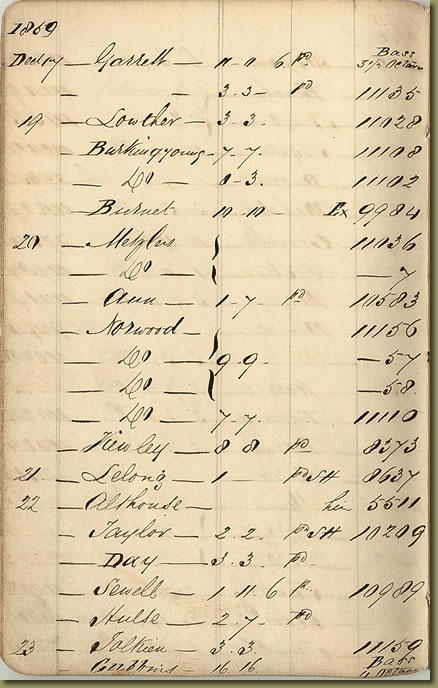 1859
Bass
Dec 17 — Garrett — 11 - 11 6 pd 3 1/2 Octave
— — 3 - 3 - pd 11135
19 — Lowther — 3 - 3 - 11028
— Burkingyoung - 7 - 7 - 11108
— Do — 3 - 11102
— Burnet — 10 - 10 - Ex 9984
20 — Metzlers 11036
— Do — — 7
— Ann — 1 - 7 - pd 10583
— Norwood — 11156
— Do — 9 - 9 - — 57
— Do — — 58
— Do — 7 - 7 - 11110
— Kewley — 8 8 pd 8373
21 — Lelong — 1 — pd SH 8637
22 — Althouse — hir 5511
— Taylor — 2 - 2 - pd SH 10209
— Day — 3 - 3 - pd
— Sewell — 1 - 11 - 6 p. 10989
— Hulse — 2 - 7 - pd
23 — Tolkien — 3 - 3 - 11159
Bass
— 16 - 16 - 4 Octave